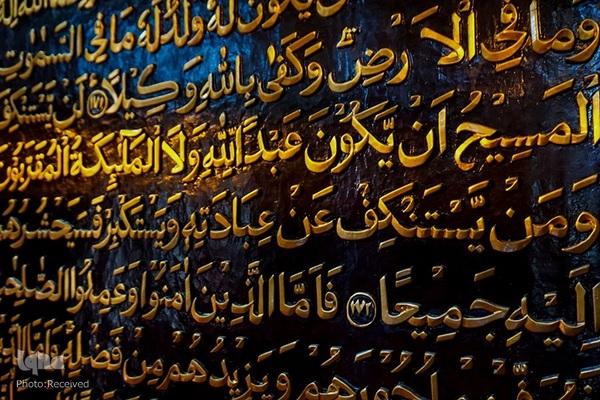 يَّكُونَ لَهٗ وَلَدٌ لَهٗ مَا فِي السَّمٰوٰتِ
وَمَا فِي الْاَرْضِ وَكَفٰى بِاللّٰهِ وَكِيْلًا ۝١٧١ لَنْ يَّسْتَنْكِفَ
الْمَسِيْحُ اَنْ يَّكُوْنَ عَبْدًا لِّلّٰهِ وَلَا الْمَلٰٓئِكَةُ الْمُقَرَّبُوْنَ
وَمَنْ يَّسْتَنْكِفْ عَنْ عِبَادَتِهٖ وَيَسْتَكْبِرْ فَسَيَحْشُرُهُمْ
اِلَيْهِ جَمِيْعًا ۝١٧٢ فَاَمَّا الَّذِيْنَ اٰمَنُوْا وَعَمِلُوا الصّٰلِحٰتِ
اُجُوْرَهُمْ وَيَزِيْدُهُمْ مِّنْ فَضْلِهٖ وَاَمَّا الَّذِيْنَ
Photo:Received